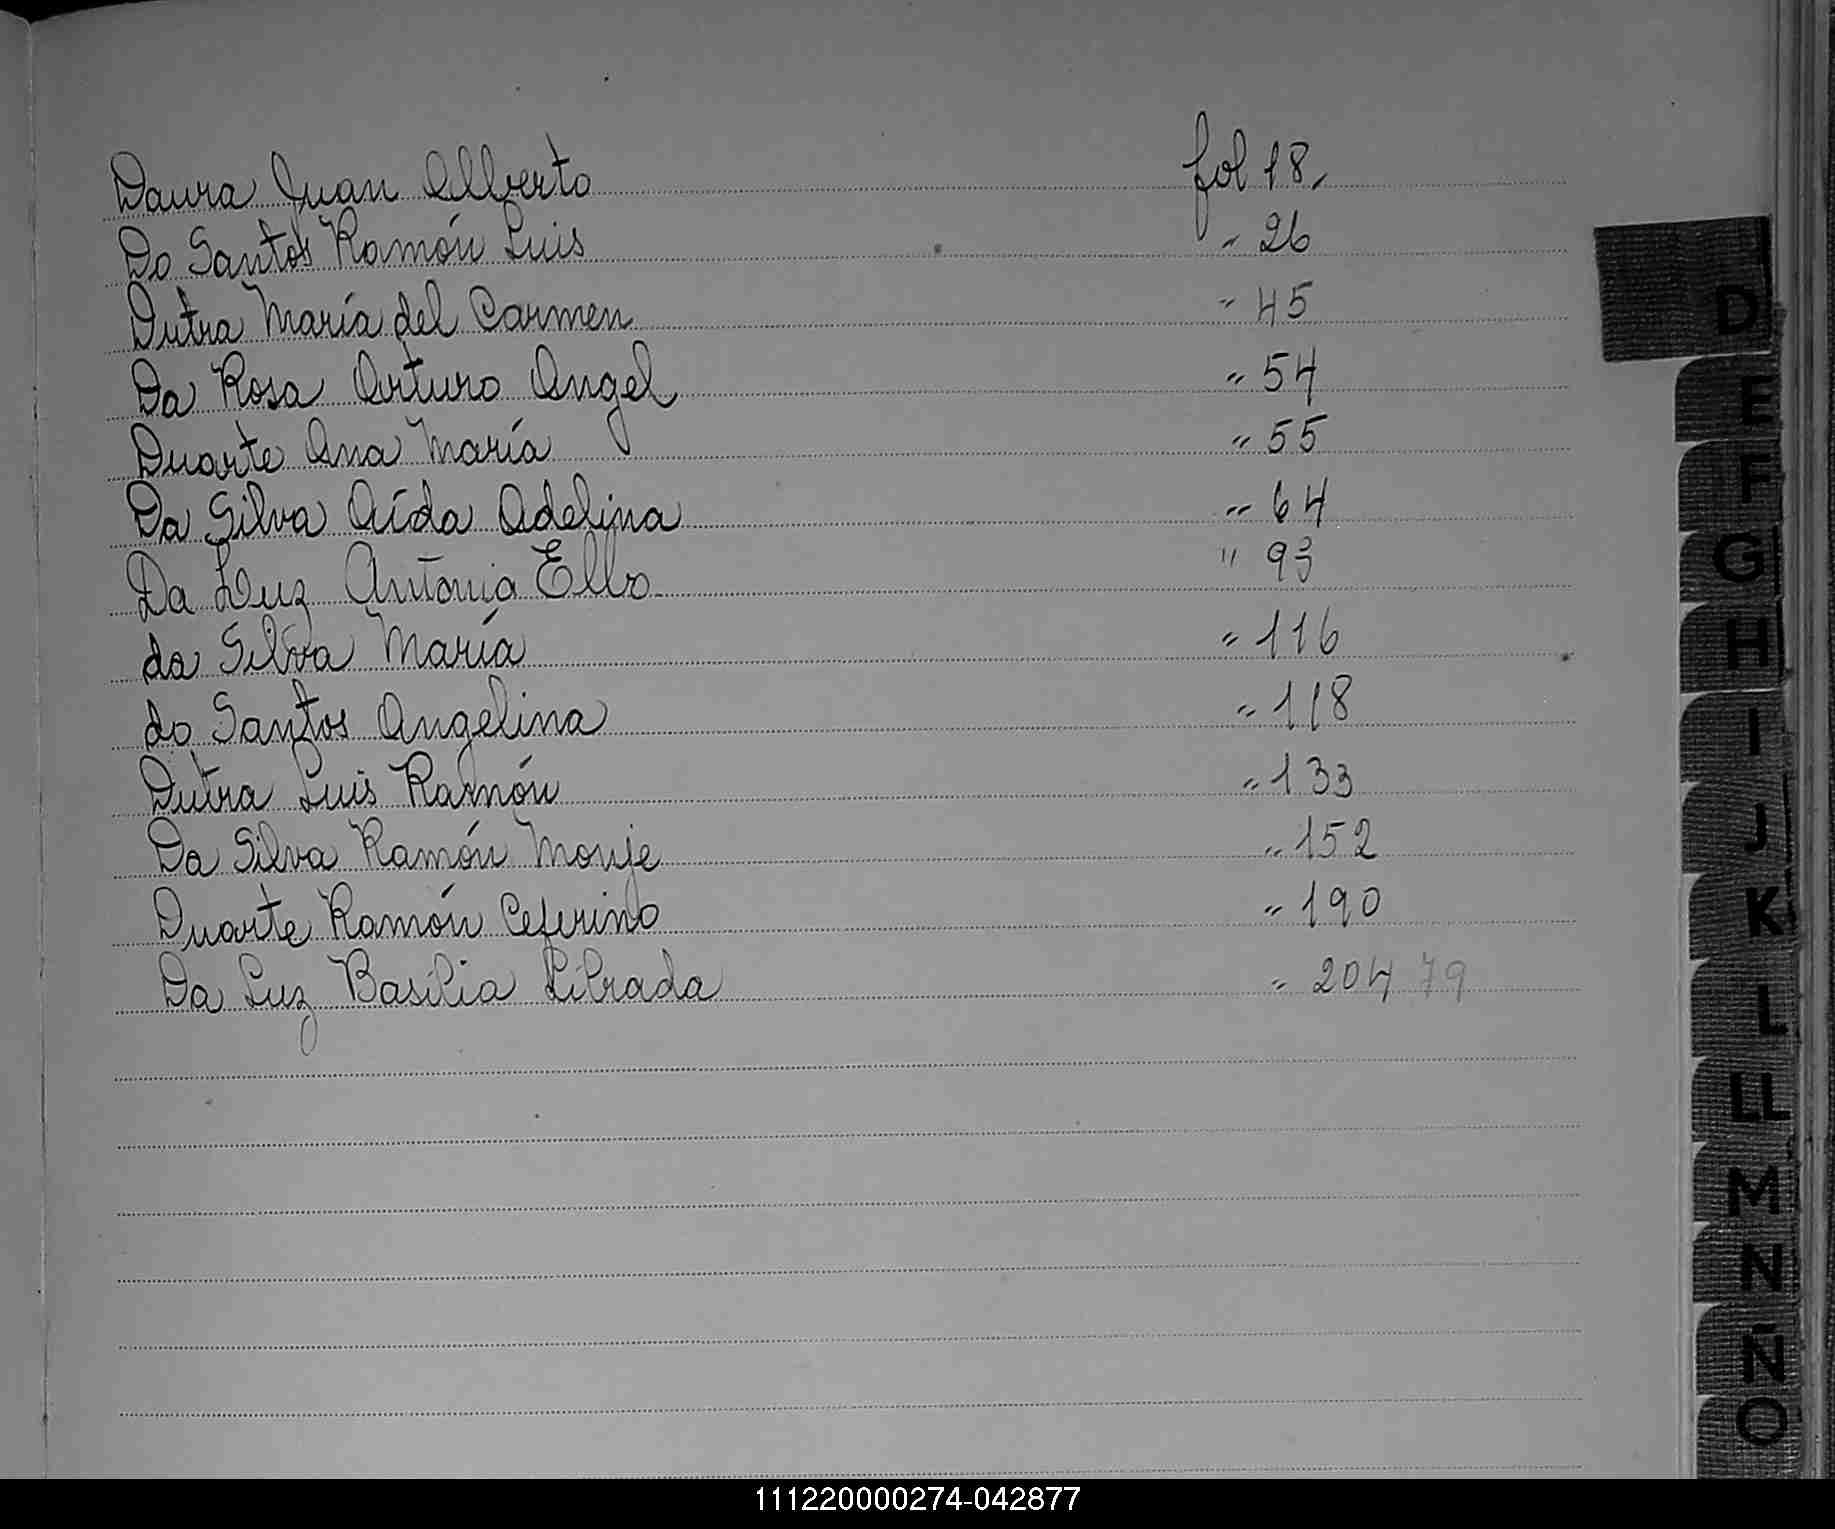 Daura Juan Alberto fol 18,
Do Santos Ramón Luis " 26
Dutra María del Carmen " 45
Da Rosa Arturo Angel " 54
Duarte Ana María " 55
Da Silva Aída Adelina " 64
Da Luz Antonia Elbo " 93
da Silva María " 116
do Santos Angelina " 118
Dutra Luis Ramón " 133
Da Silva Ramón Monje " 152
Duarte Ramón Ceferino " 190
Da Luz Basilia Librada " 204 79
D
E
F
G
H
I
J
K
L
LL
M
N
Ñ
O
111220000274-042877